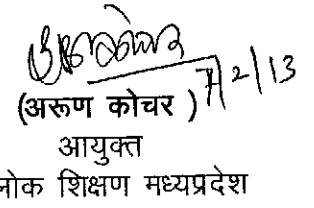 7/2/13
(अरूण कोचर )
आयुक्त
लोक शिक्षण मध्यप्रदेश